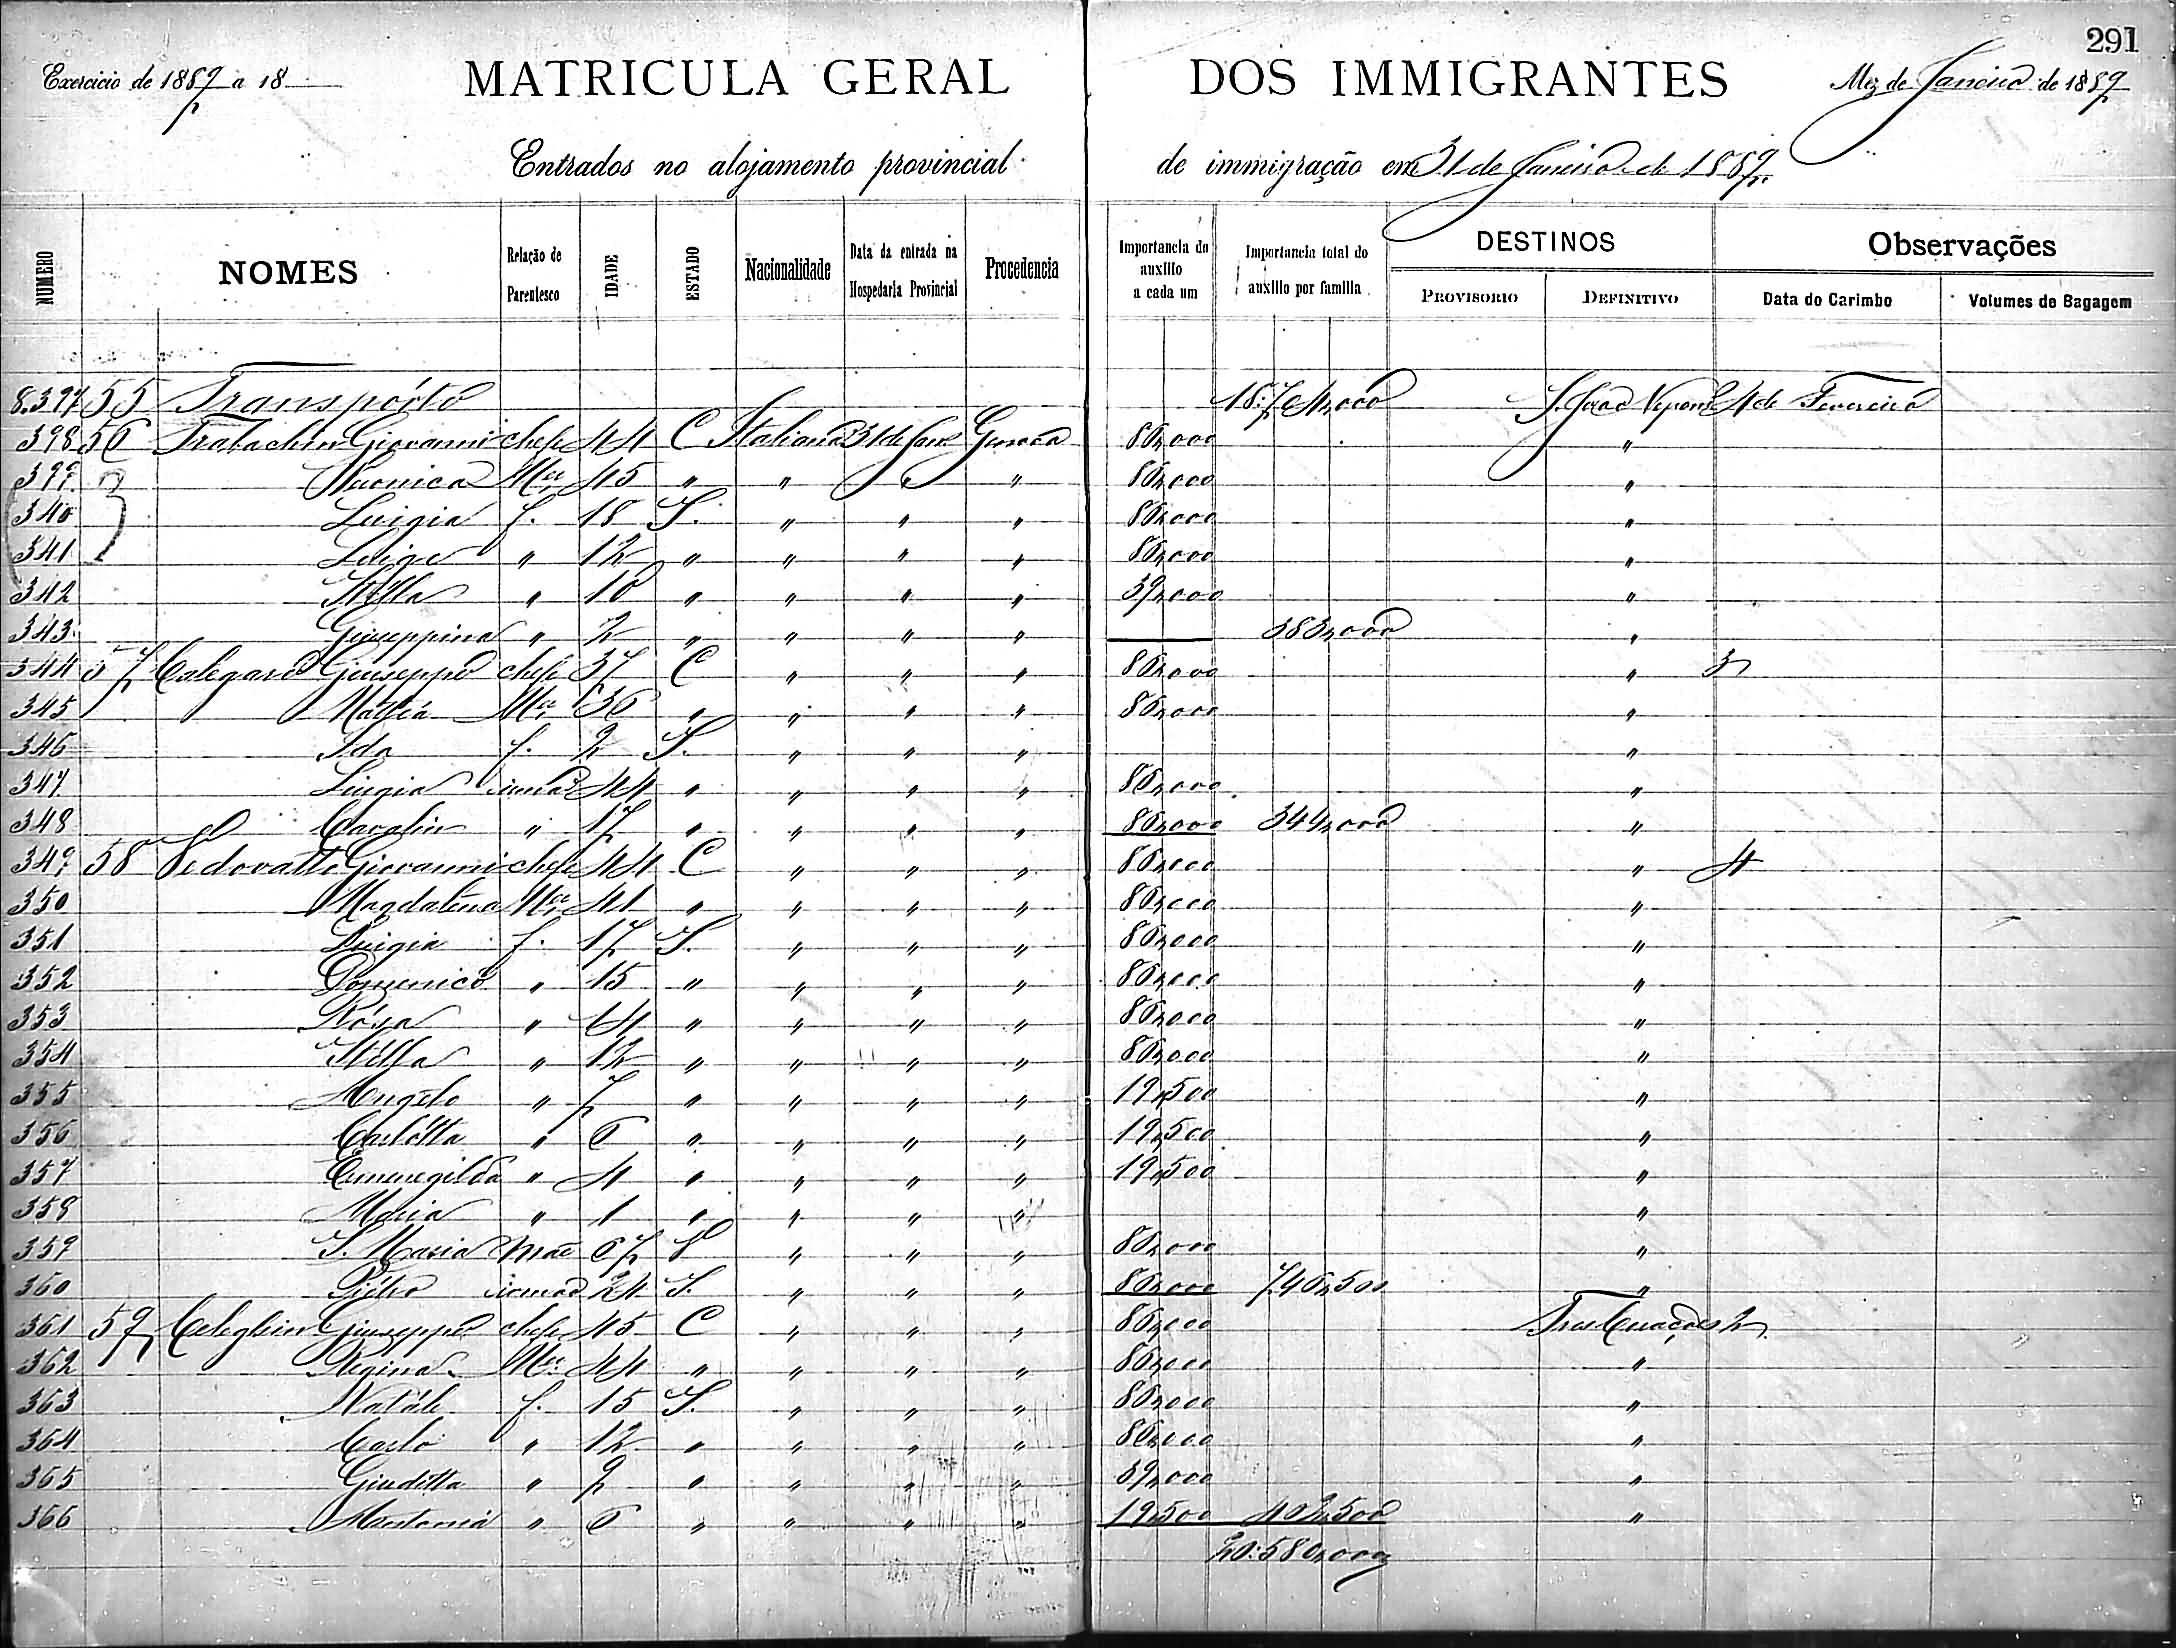 291
Exercicio de 1889 a 18
MATRICULA GERAL DOS IMMIGRANTES
Mez de Janeiro de 1889
Entrados no alojamento provincial de immigração em 31 de Janeiro de 1889
NUMERO NOMES Relação de Parentesco IDADE ESTADO Nacionalidade Data da entrada na Hospedaria Provincial Procedencia Importancia do auxilio a cada um Importancia total do auxilio por familia DESTINOS PROVISORIO DEFINITIVO Observações Data do Carimbo Volumes de Bagagem
8.397 55 Transpórto 4 de Fevereiro
398 56 Giovanni chefe 44 C Italiana 31 de Jan Genova 86,000 "
399 Mer 45 " " " " 86,000 "
340 Luigia f. 18 S. " " " 86,000 "
341 Luige " 12 " " " " 86,000 "
342 Stélla " 10 " " " " 39,000 "
343 Giuseppina " 2 " " " " 383,000 "
344 57 Calegaro Giuseppe chefe 37 C " " " 86,000 " 3
345 Mer 36 " " " " 86,000 "
346 Ida f. 2 S. " " " "
347 Luigia irmã 44 " " " " 86,000 "
348 " 17 " " " " 86,000 344,000 "
349 58 Pedovatto Giovanni chefe 44 C " " " 86,000 " 4
350 Magdalena Mer 41 " " " " 86,000 "
351 Luigia f. 17 S. " " " 86,000 "
352 Domenico " 15 " " " " 86,000 "
353 Rósa " 14 " " " " 86,000 "
354 Stélla " 12 " " " " 86,000 "
355 Angelo " 7 " " " " 19,500 "
356 Carlótta " 6 " " " " 19,500 "
357 Ermenegilda " 4 " " " " 19,500 "
358 Maria " 1 " " " " "
359 S. Maria mãe 67 V " " " 86,000 "
360 Piétro irmão 24 S. " " " 86,000 746,500 "
361 59 Celeghin Giuseppe chefe 45 C " " " 86,000 2
362 Regina Mer 44 " " " " 86,000 "
363 Natále f. 15 S. " " " 86,000 "
364 Carlo " 12 " " " " 86,000 "
365 Giuditta " 9 " " " " 39,000 "
366 Antonia " 6 " " " " 19,500 402,500 "
20:580,000